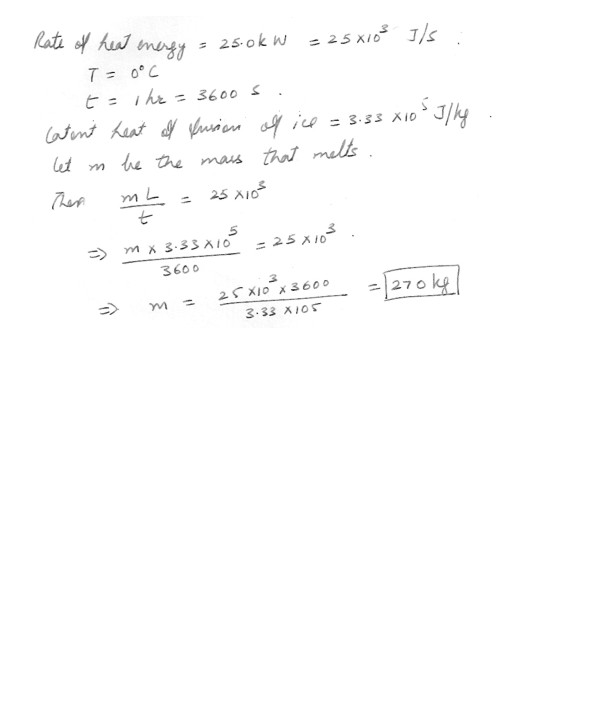 Rate of heat energy = 25.0 k W = 25 x 10³ J/s .
T = 0°C
t = 1 hr = 3600 s .
Latent heat of fusion of ice = 3.33 x 10⁵ J/kg .
let m be the mass that melts .
Then mL/t = 25 x 10³
=> m x 3.33 x 10⁵ / 3600 = 25 x 10³ .
=> m = 25 x 10³ x 3600 / 3.33 x 105 = 270 kg